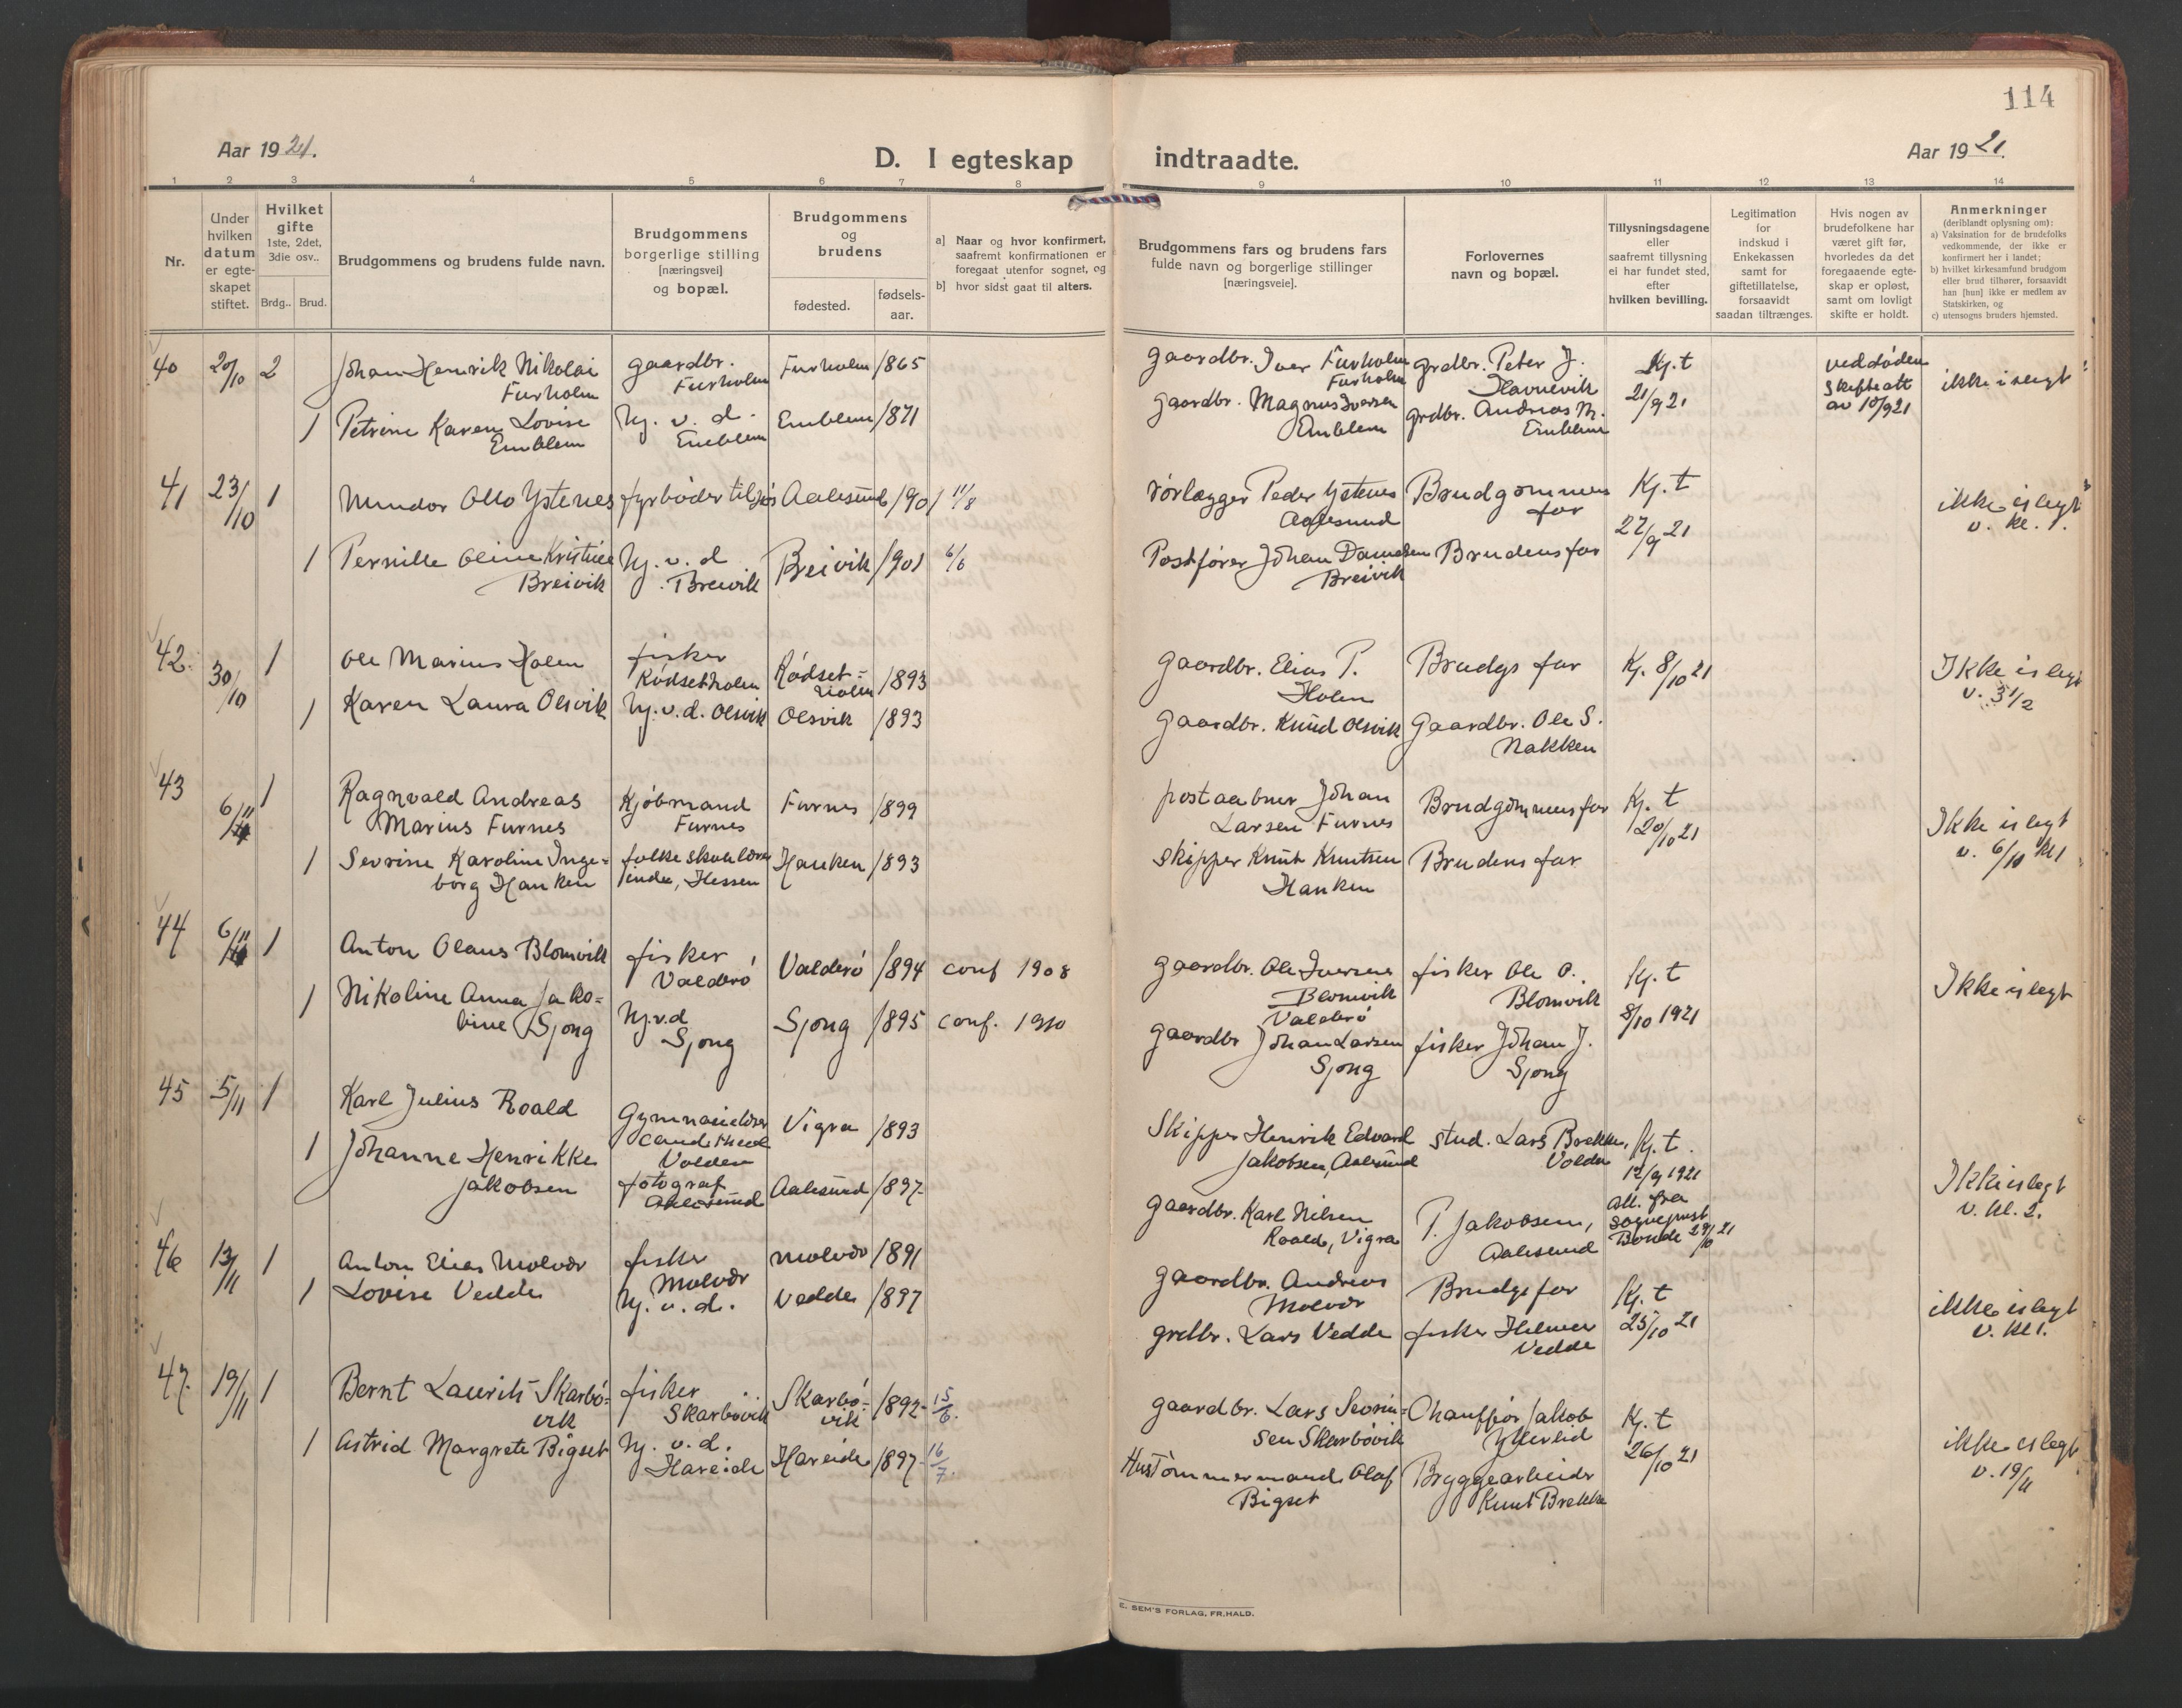 114
Aar 1921.
D. I egteskap indtraadte.
Aar 1921.
1 2 3 4 5 6 7 8 9 10 11 12 13 14
Nr.
Under
hvilken
datum
er egte-
skapet
stiftet.
Hvilket
gifte
1ste, 2det,
3die osv..
Brdg.. Brud.
Brudgommens og brudens fulde navn.
Brudgommens
borgerlige stilling
[næringsvei]
og bopæl.
Brudgommens
og
brudens
fødested.
fødsels-
aar.
a] Naar og hvor konfirmert,
saafremt konfirmationen er
foregaat utenfor sognet, og
b] hvor sidst gaat til alters.
Brudgommens fars og brudens fars
fulde navn og borgerlige stillinger
[næringsveie].
Forlovernes
navn og bopæl.
Tillysningsdagene
eller
saafremt tillysning
ei har fundet sted,
efter
hvilken bevilling.
Legitimation
for
indskud i
Enkekassen
samt for
giftetillatelse,
forsaavidt
saadan tiltrænges.
Hvis nogen av
brudefolkene har
været gift før,
hvorledes da det
foregaaende egte-
skap er opløst,
samt om lovligt
skifte er holdt.
Anmerkninger
(deriblandt oplysning om):
a) Vaksination for de brudefolks
vedkommende, der ikke er
konfirmert her i landet;
b) hvilket kirkesamfund brudgom
eller brud tilhører, forsaavidt
han [hun] ikke er medlem av
Statskirken, og
c) utensogns bruders hjemsted.
40 20/10 2 Johan Henrik Nikolai gaardbr. Furholm 1865 gaardbr. Iver Furholm grdbr. Peter J. Kj. t ved døden ikke i slegt
Furholm Furholm Furholm Havnevik 21/9 21 skifteatt
1 Petrine Karen Lovise hj. v. d. Emblem 1871 gaardbr. Magnus Iversen grdbr. Andreas M. av 10/9 21
Emblem Emblem Emblem Emblem
41 23/10 1 Mindor Otto Ystenes fyrbøder tilsjøs Aalesund 1901 11/8 rørlægger Peder Ystenes Brudgommens Kj. t ikke i slegt
Aalesund far 27/9 21 v. kl. 1.
1 Pernille Oline Kristine hj. v. d Breivik 1901 6/6 Postfører Johan Danielsen Brudens far
Breivik Breivik Breivik
42. 30/10 1 Ole Marius Holen fisker Rødset= 1893 gaardbr. Elias P. Brudgs far Kj. 8/10 21 Ikke i slegt
Rødsetholen holen Holen v. 3 1/2
1 Karen Laura Olsvik hj. v. d. Olsvik Olsvik 1893 gaardbr. Knud Olsvik Gaardbr. Ole S.
Nakken
43 6/11 1 Ragnvald Andreas Kjøbmand Furnes 1899 postaabner Johan Brudgommens far Kj. t Ikke i slegt
Marius Furnes Furnes Larsen Furnes 20/10 21 v. 6/10 kl 1
1 Sevrine Karoline Inge= folkeskolelærer Hanken 1893 skipper Knut Knutsen Brudens far
borg Hanken inde, Hessen Hanken
44 6/11 1 Anton Olaus Blomvik fisker Valderø 1894 conf 1908 gaardbr. Ole Iversen fisker Ole O. Kj. t Ikke i slegt
Valderø Blomvik Blomvik 8/10 1921
Valderø
1 Nikoline Anna Jako= hj. v. d Sjong 1895 conf. 1910 gaardbr Johan Larsen fisker Johan J.
bine Sjong Sjong Sjong Sjong
45 5/11 1 Karl Julius Roald Gymnasielærer Vigra 1893 Skipper Henrik Edvard stud. Lars Brekke, Kj. t.
cand. theol Jakobsen, Aalesund Volda 12/9 1921
Volden
1 Johanne Henrikke fotograf Aalesund 1897 gaardbr. Karl Nilsen P. Jakobsen, att. fra Ikke i slegt
Jakobsen Aalesund Roald, Vigra Aalesund sogneprest v. kl. 2.
Bonde 29/10 21
46 13/11 1 Anton Elias Molvær fisker Molvær 1891 gaardbr. Andreas Brudgs far Kj. t ikke i slegt
Molvær Molvær 25/10 21 v. kl 1.
1 Lovise Vedde hj. v. d. Vedde 1897 grdbr. Lars Vedde fisker Helmer
Vedde
47. 19/11 1 Bernt Laurits Skarbø= fisker Skarbø= 1892 15/6. gaardbr. Lars Sevrin= Chauffør Jakob Kj. t ikke i slegt
vik Skarbøvik vik sen Skarbøvik Ytterlid 26/10 21 v. 19/11
1 Astrid Margrete Bigset hj. v. d. Hareide 1897 16/7. Hustømmermand Olaf Bryggearbeider
Hareide Bigset Knut Brekke
E. SEM'S FORLAG, FR.HALD.